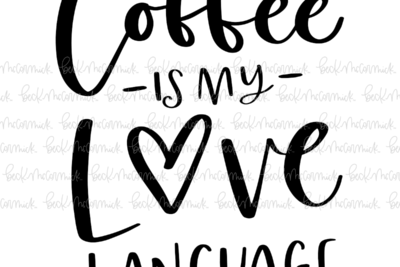 Coffee
-IS MY-
Love
LANGUAGE